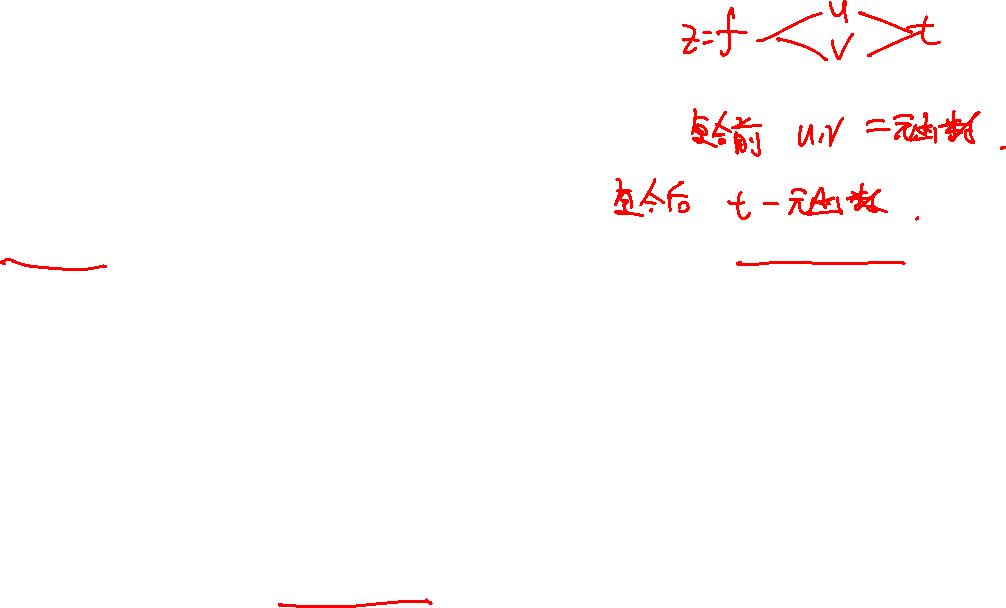 z=f u v t
复合前 u,v 二元函数.
复合后 t 一元函数.